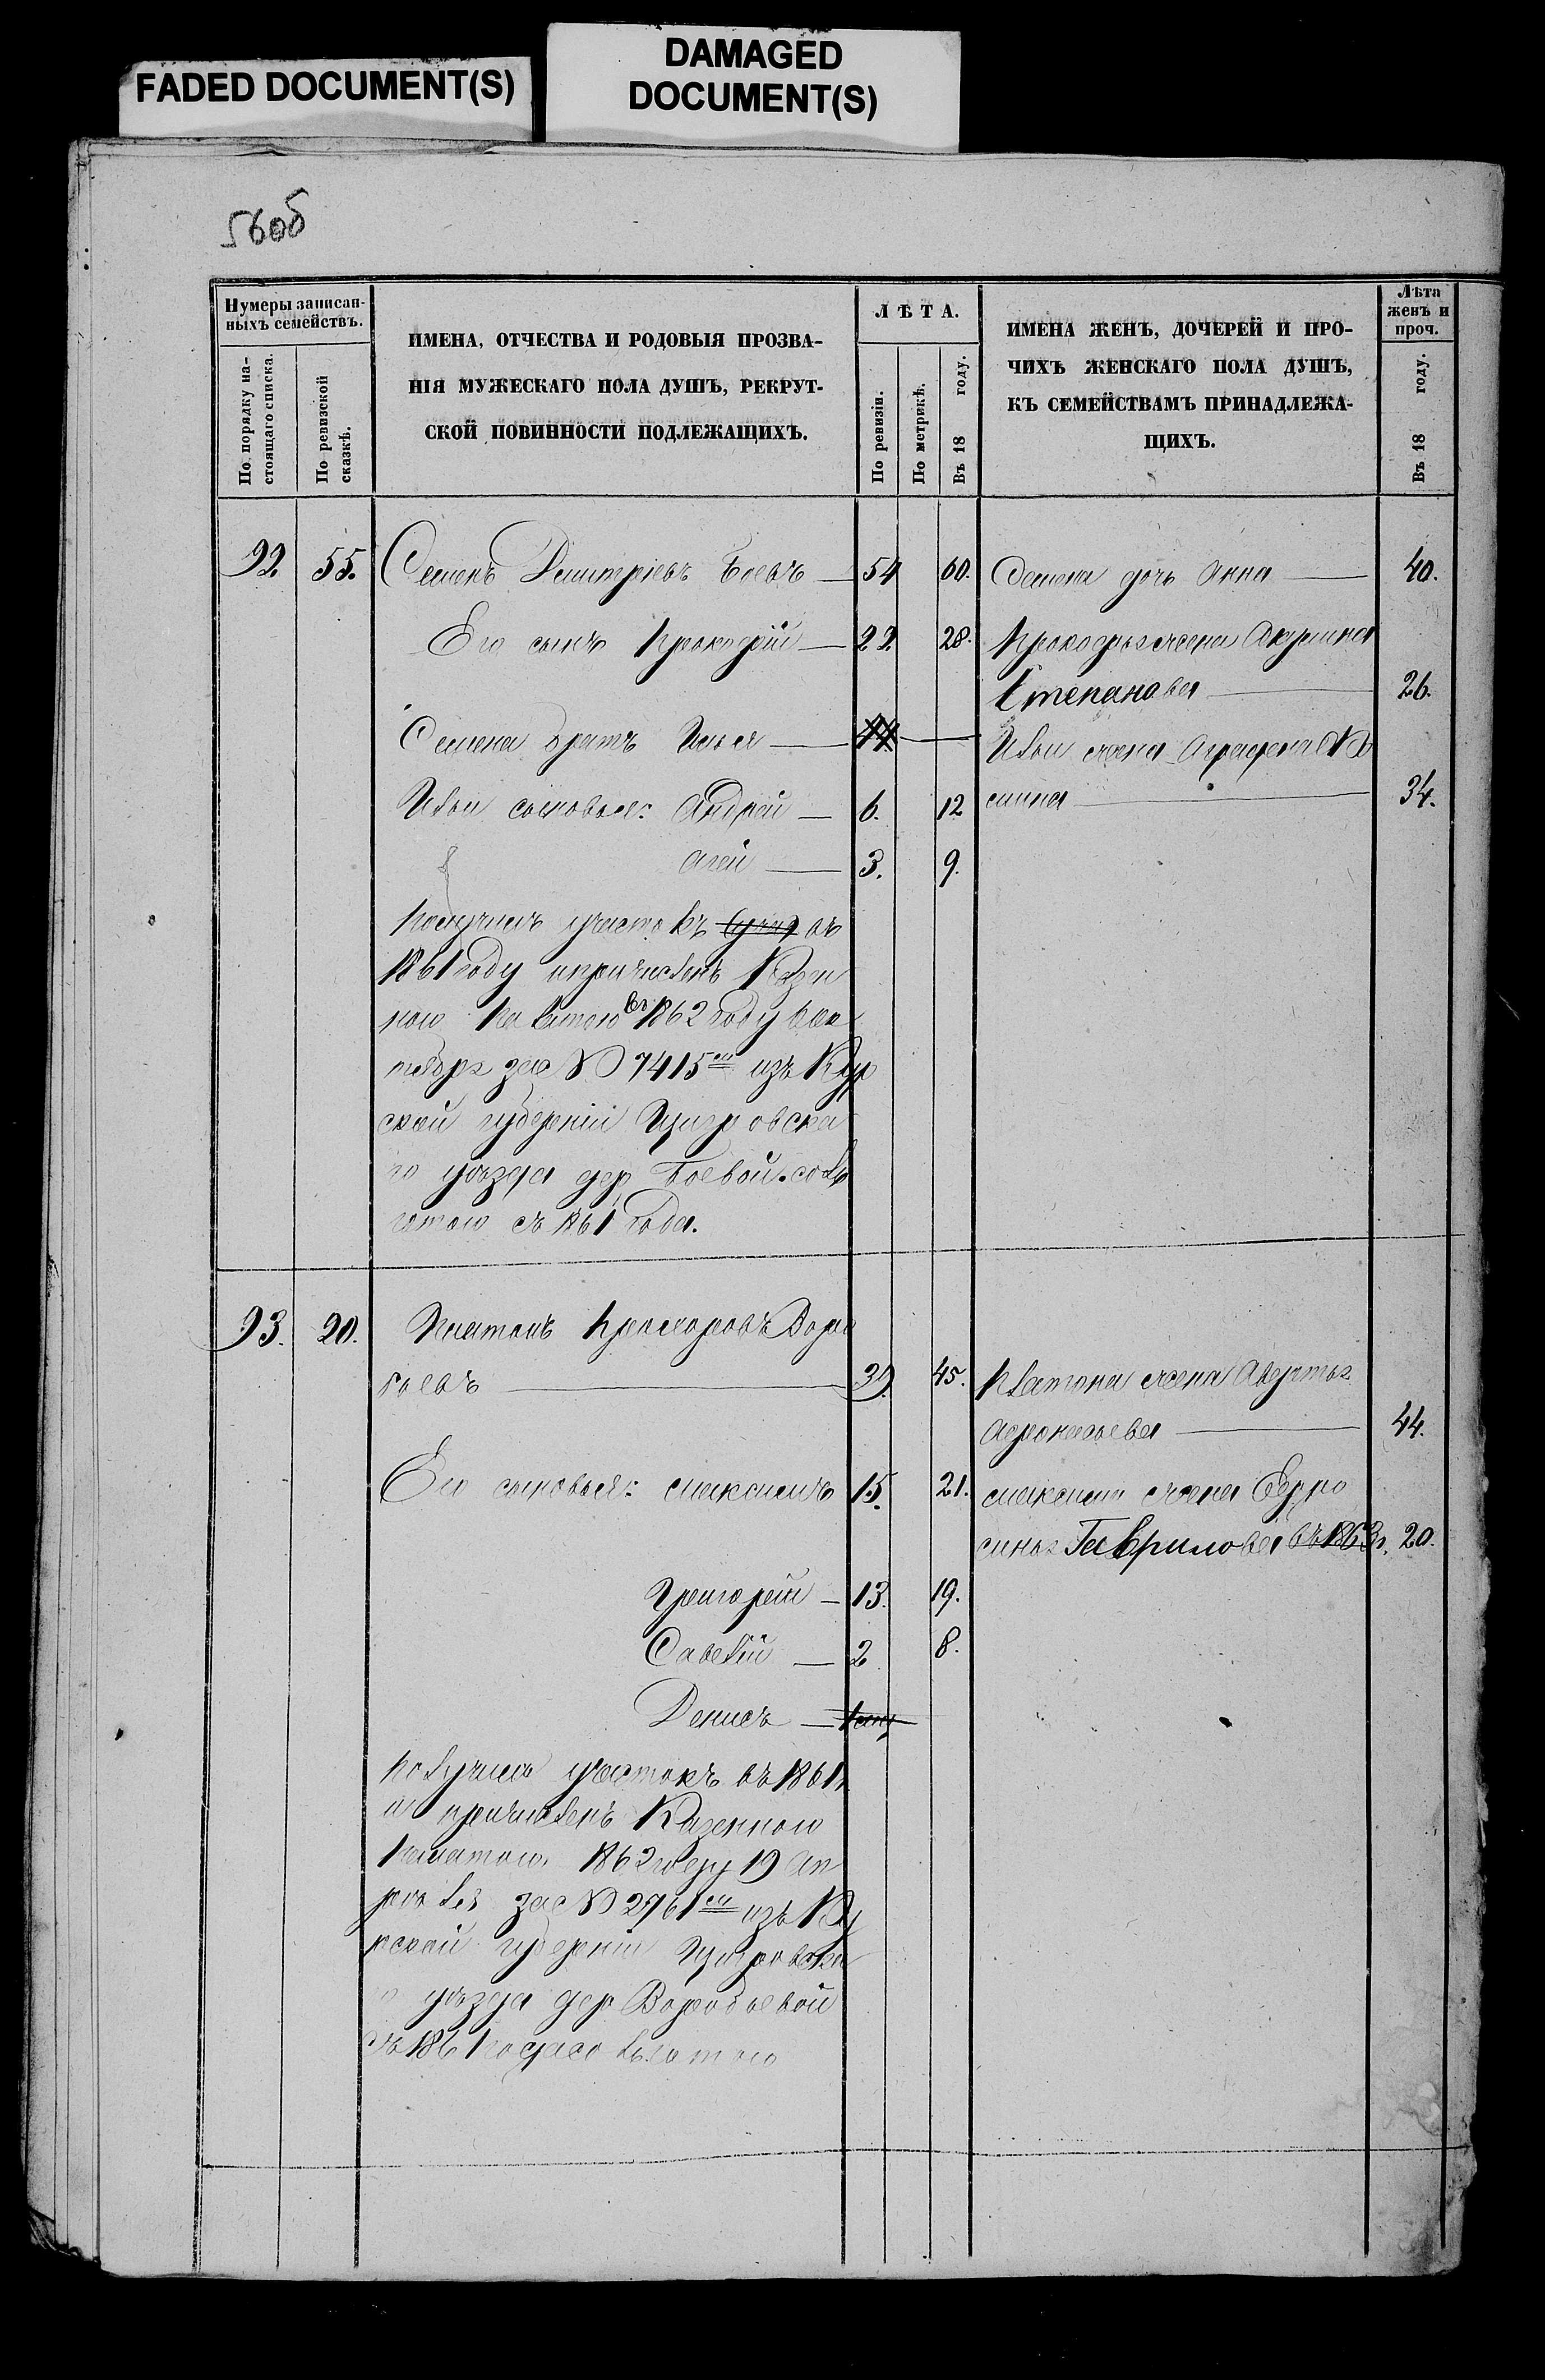 FADED DOCUMENT(S)
DAMAGED
DOCUMENT(S)
56об
Нумеры записан-
ныхъ семействъ.
По порядку на-
стоящаго списка.
По ревизской
сказкѣ.
ИМЕНА, ОТЧЕСТВА И РОДОВЫЯ ПРОЗВА-
НІЯ МУЖЕСКАГО ПОЛА ДУШЪ, РЕКРУТ-
СКОЙ ПОВИННОСТИ ПОДЛЕЖАЩИХЪ.
ЛѢТА.
По ревизіи.
По метрикѣ.
Въ 18 году.
ИМЕНА ЖЕНЪ, ДОЧЕРЕЙ И ПРО-
ЧИХЪ ЖЕНСКАГО ПОЛА ДУШЪ,
КЪ СЕМЕЙСТВАМЪ ПРИНАДЛЕЖА-
ЩИХЪ.
Лѣта
женъ и
проч.
Въ 18 году.
92. 55. Семенъ Дмитріевъ Боевъ — 54 60. Семена дочь Анна — 40.
Его сынъ Прокофій — 22 28. Прокофья жена Акулина
Степанова — 26.
Семена братъ Илья — Ильи жена Аграфена
Ильи сыновья: Андрей — 6. 12 34.
Агей — 3. 9.
Получилъ участокъ въ
1861 году и причисленъ Казен
ною Палатою въ 1862 году Сен
тября за № 7415м изъ Кур
ской губерніи Щигровска
го уѣзда дер Боевой. со ль
готою съ 1861 года.
93. 20. Платонъ Прохоровъ Воро
боевъ — 39. 45. Платона жена Авдотья
Афонасьева — 44.
Его сыновья: Максимъ 15. 21. Максима жена Ефро
синья Гаврилова въ 1863г. 20.
Григорій — 13. 19.
Савелій — 2 8.
Денисъ —
Получилъ участокъ въ 1861г.
и причисленъ Казенною
Палатою 1862 году 19 Ап
рѣля за № 2761м изъ Ку
рской губерніи Щигровска
го уѣзда дер Воробьевой
съ 1861 года со льготою